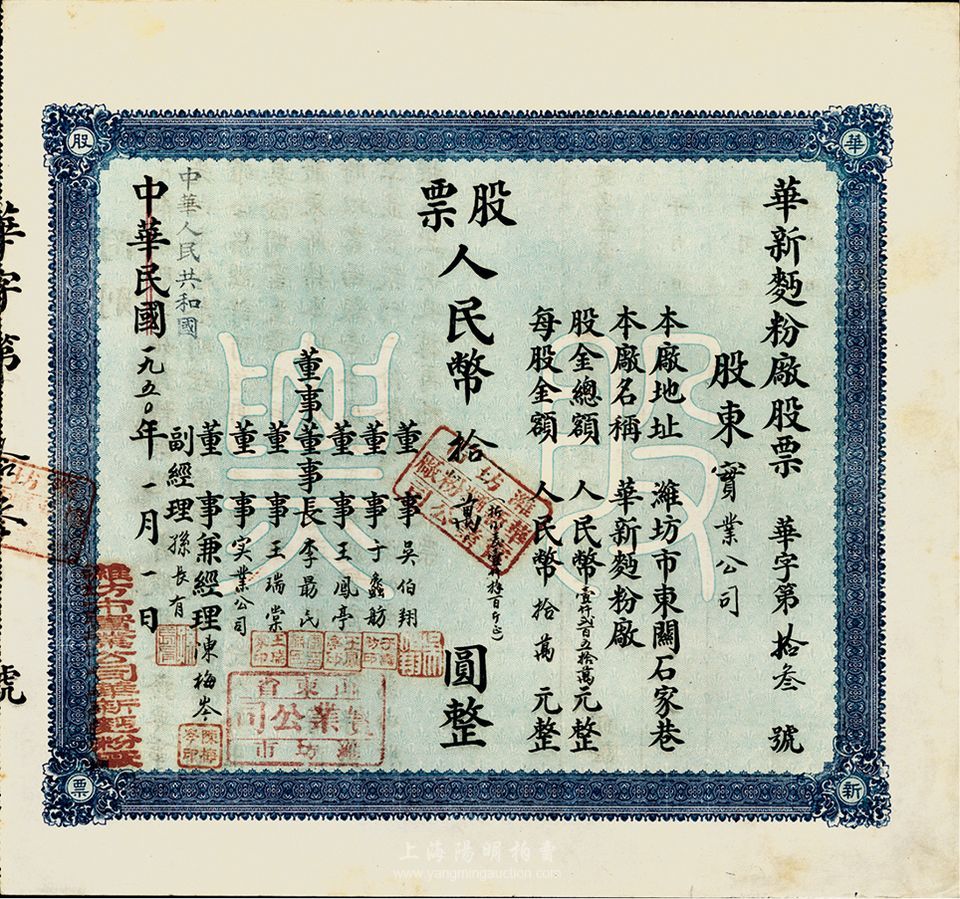 華新麪粉廠股票 華字第拾叁號
股東實業公司
本廠地址 濰坊市東關石家巷
本廠名稱 華新麪粉廠
股金總額 人民幣壹仟貳百五拾萬元整
每股金額 人民幣拾萬元整
股票
人民幣拾萬圓整
董事 吳伯翔
董事 于蠡舫
董事 王鳳亭
董事長 李最民
董事 王瑞棠
董事 实業公司
董事兼經理 陳梅岑
副經理 孫長有
中華人民共和國
中華民國一九五〇年一月一日
股
華
票
新
山東省
實業公司
濰坊市
濰坊市實業公司華新麪粉廠
華字第
號
上海陽明拍賣
www.yangmingauction.com